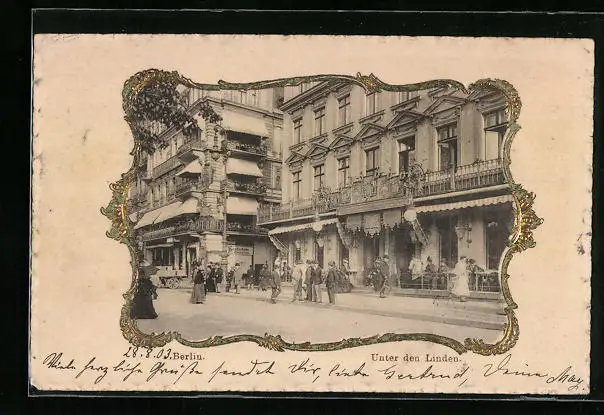 28.8.03. Berlin. Unter den Linden.
Viele herzliche Grüße sendet Dir, liebe Gertrud, Deine May.